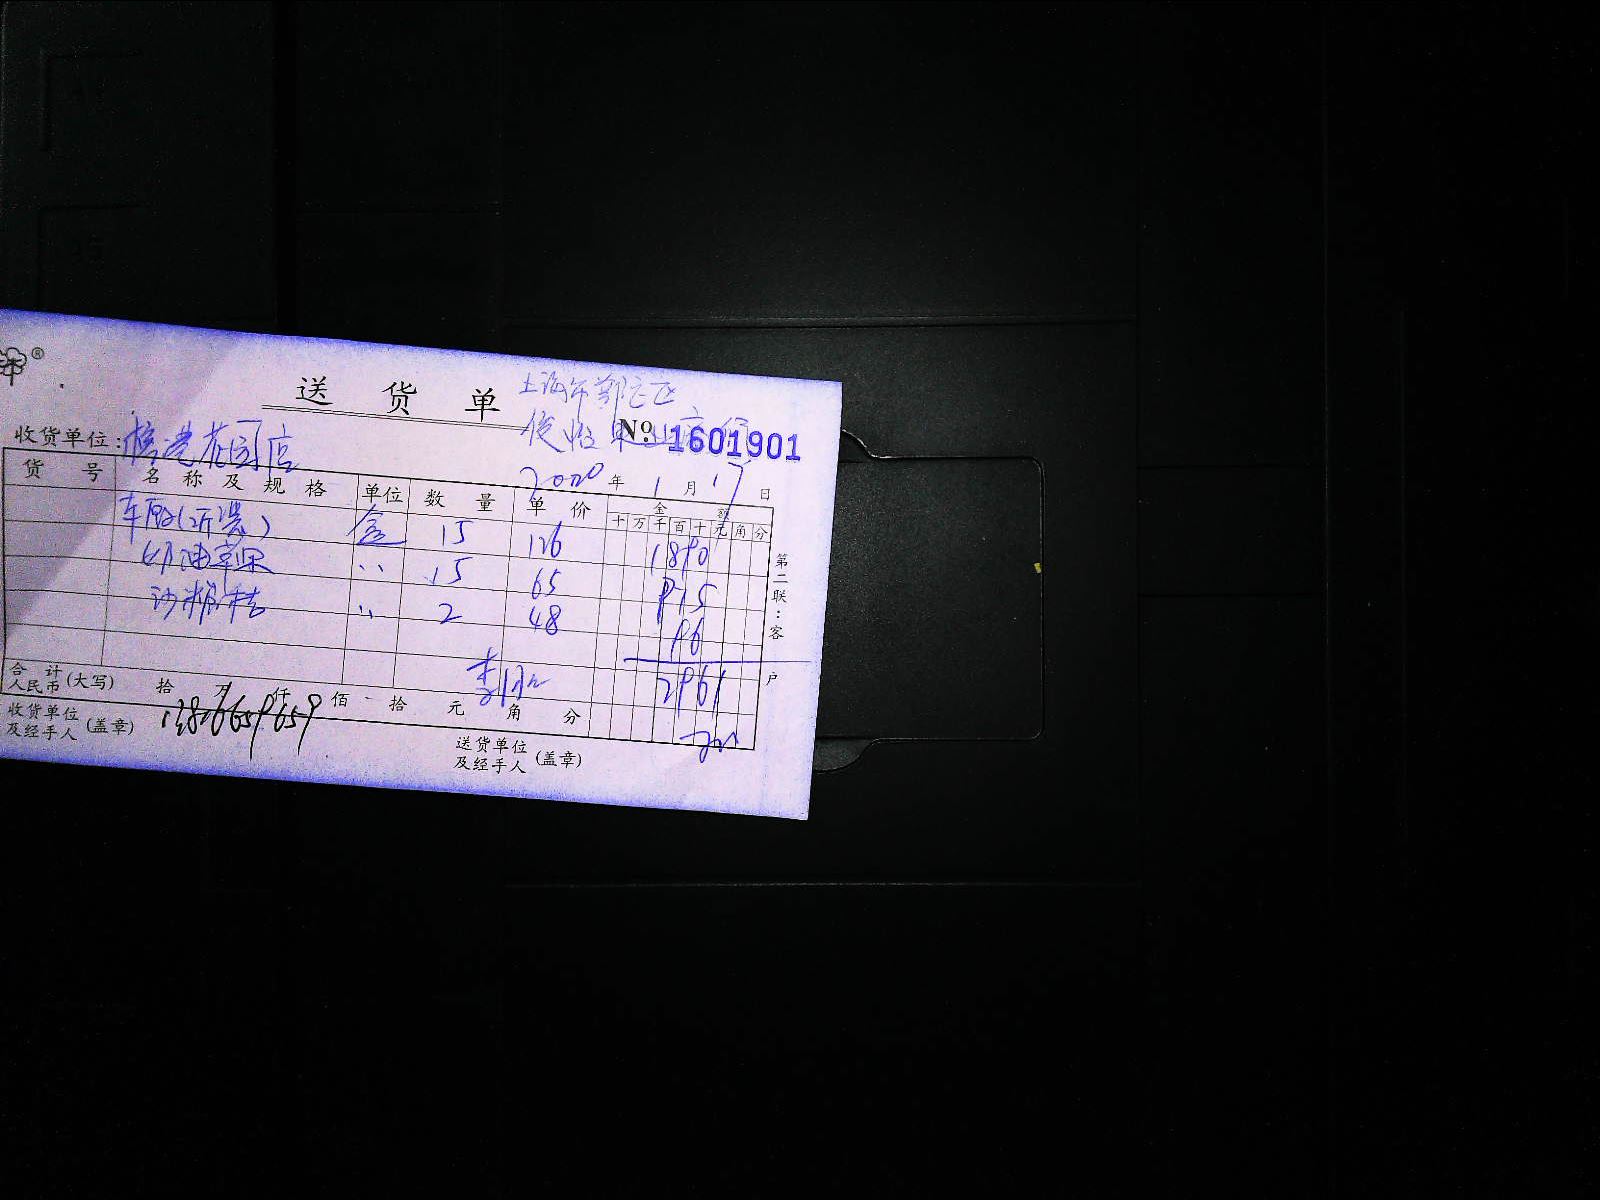 ®
送 货 单
上海年郭
No. 1601901
收货单位: 花园店
2020 年 1 月 17 日
货 号 名 称 及 规 格 单位 数 量 单 价 金 额
十 万 千 百 十 元 角 分
车厘 盒 15 126 1890
奶油草果 〃 15 65 975
沙糖桔 〃 2 48 96
2961
合 计 人民币 (大写) 拾 万 仟 佰 拾 元 角 分
收货单位 及经手人 (盖章)
送货单位 及经手人 (盖章)
第二联:客户